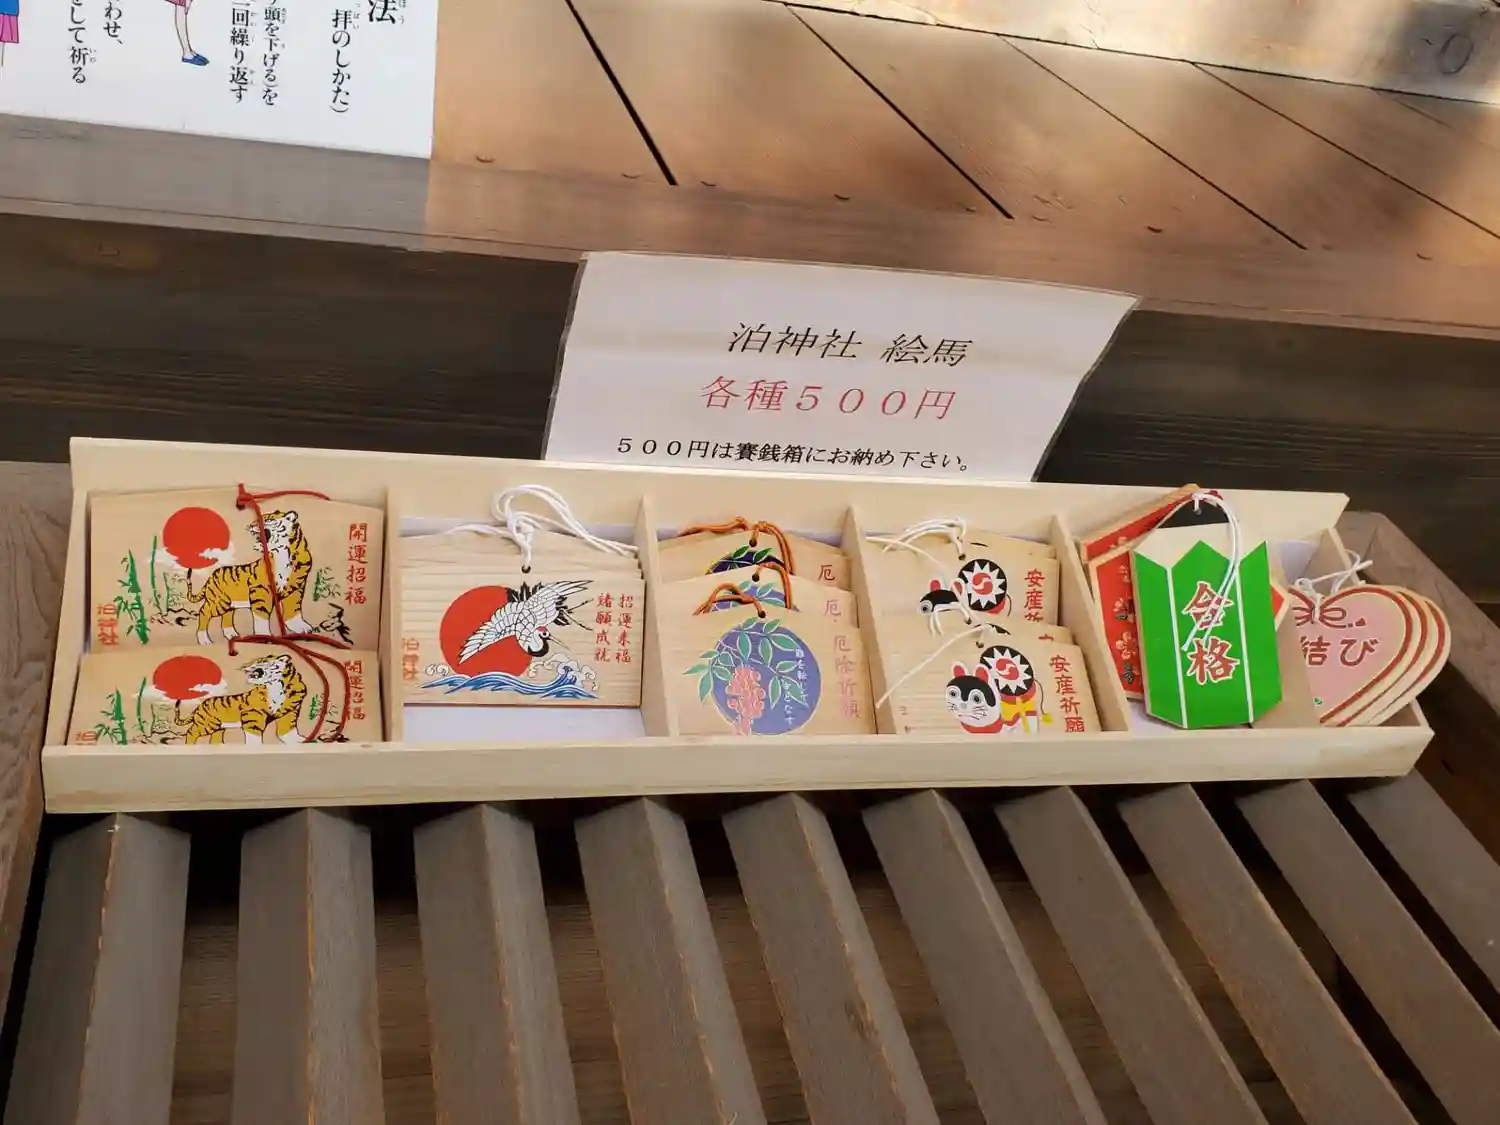 法
拝のしかた)
頭を下げる)を
二回繰り返す
わせ、
をして祈る
泊神社 絵馬
各種500円
500円は賽銭箱にお納め下さい。
開運招福
泊神社
開運招福
招運来福
諸願成就
泊神社
厄
厄
厄除祈願
難を転じて
安産祈
安産祈願
合格
結び